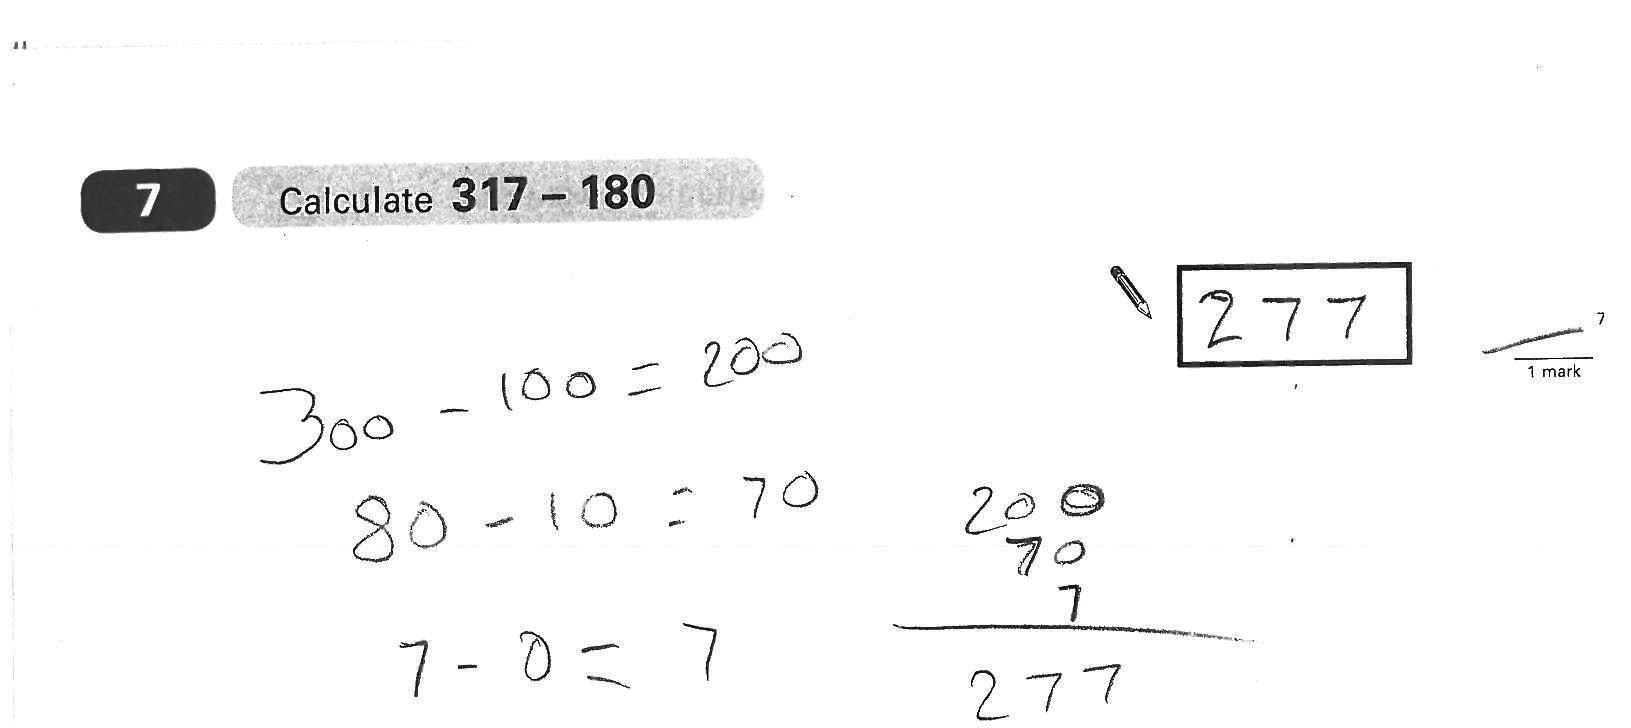 7 Calculate 317 – 180
277
7
1 mark
300 - 100 = 200
80 - 10 = 70
7 - 0 = 7
200
70
7
277